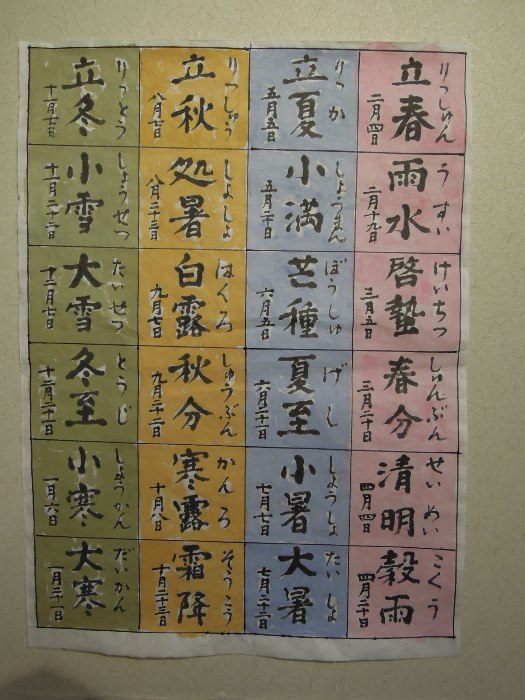 りっしゅん
立春
二月四日
うすい
雨水
二月十九日
けいちつ
啓蟄
三月五日
しゅんぶん
春分
三月二十日
せいめい
清明
四月四日
こくう
穀雨
四月二十日
りっか
立夏
五月五日
しょうまん
小満
五月二十日
ぼうしゅ
芒種
六月五日
げし
夏至
六月二十一日
しょうしょ
小暑
七月七日
たいしょ
大暑
七月二十二日
りっしゅう
立秋
八月七日
しょしょ
処暑
八月二十三日
はくろ
白露
九月七日
しゅうぶん
秋分
九月二十二日
かんろ
寒露
十月八日
そうこう
霜降
十月二十三日
りっとう
立冬
十一月七日
しょうせつ
小雪
十一月二十二日
たいせつ
大雪
十二月七日
とうじ
冬至
十二月二十一日
しょうかん
小寒
一月六日
だいかん
大寒
一月二十一日